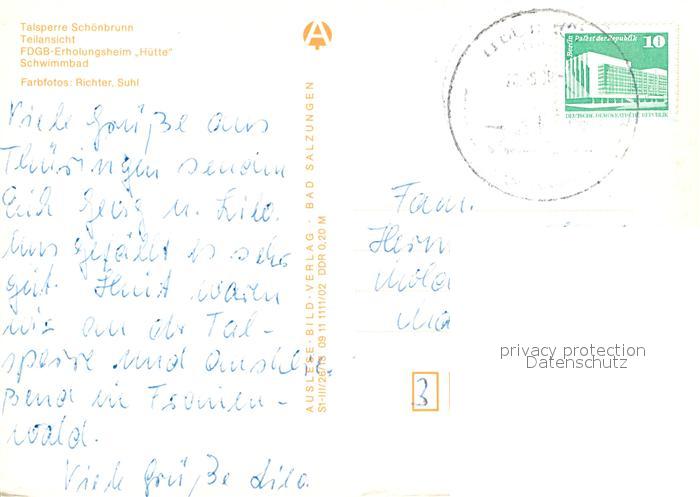 Talsperre Schönbrunn
Teilansicht
FDGB-Erholungsheim „Hütte"
Schwimmbad
Farbfotos: Richter, Suhl
Viele Grüße aus
Thüringen senden
Euch Georg u. Lilo.
Uns gefällt es sehr
gut. Heute waren
wir an der Tal-
sperre und anschlie-
ßend in Frauen-
wald.
Viele Grüße Lilo.
AUSLESE-BILD-VERLAG · BAD SALZUNGEN
S1-III/26/13 09 11 1111/02 DDR 0,20 M
Berlin Palast der Republik
10
DEUTSCHE DEMOKRATISCHE REPUBLIK
Fam.
3
privacy protection
Datenschutz